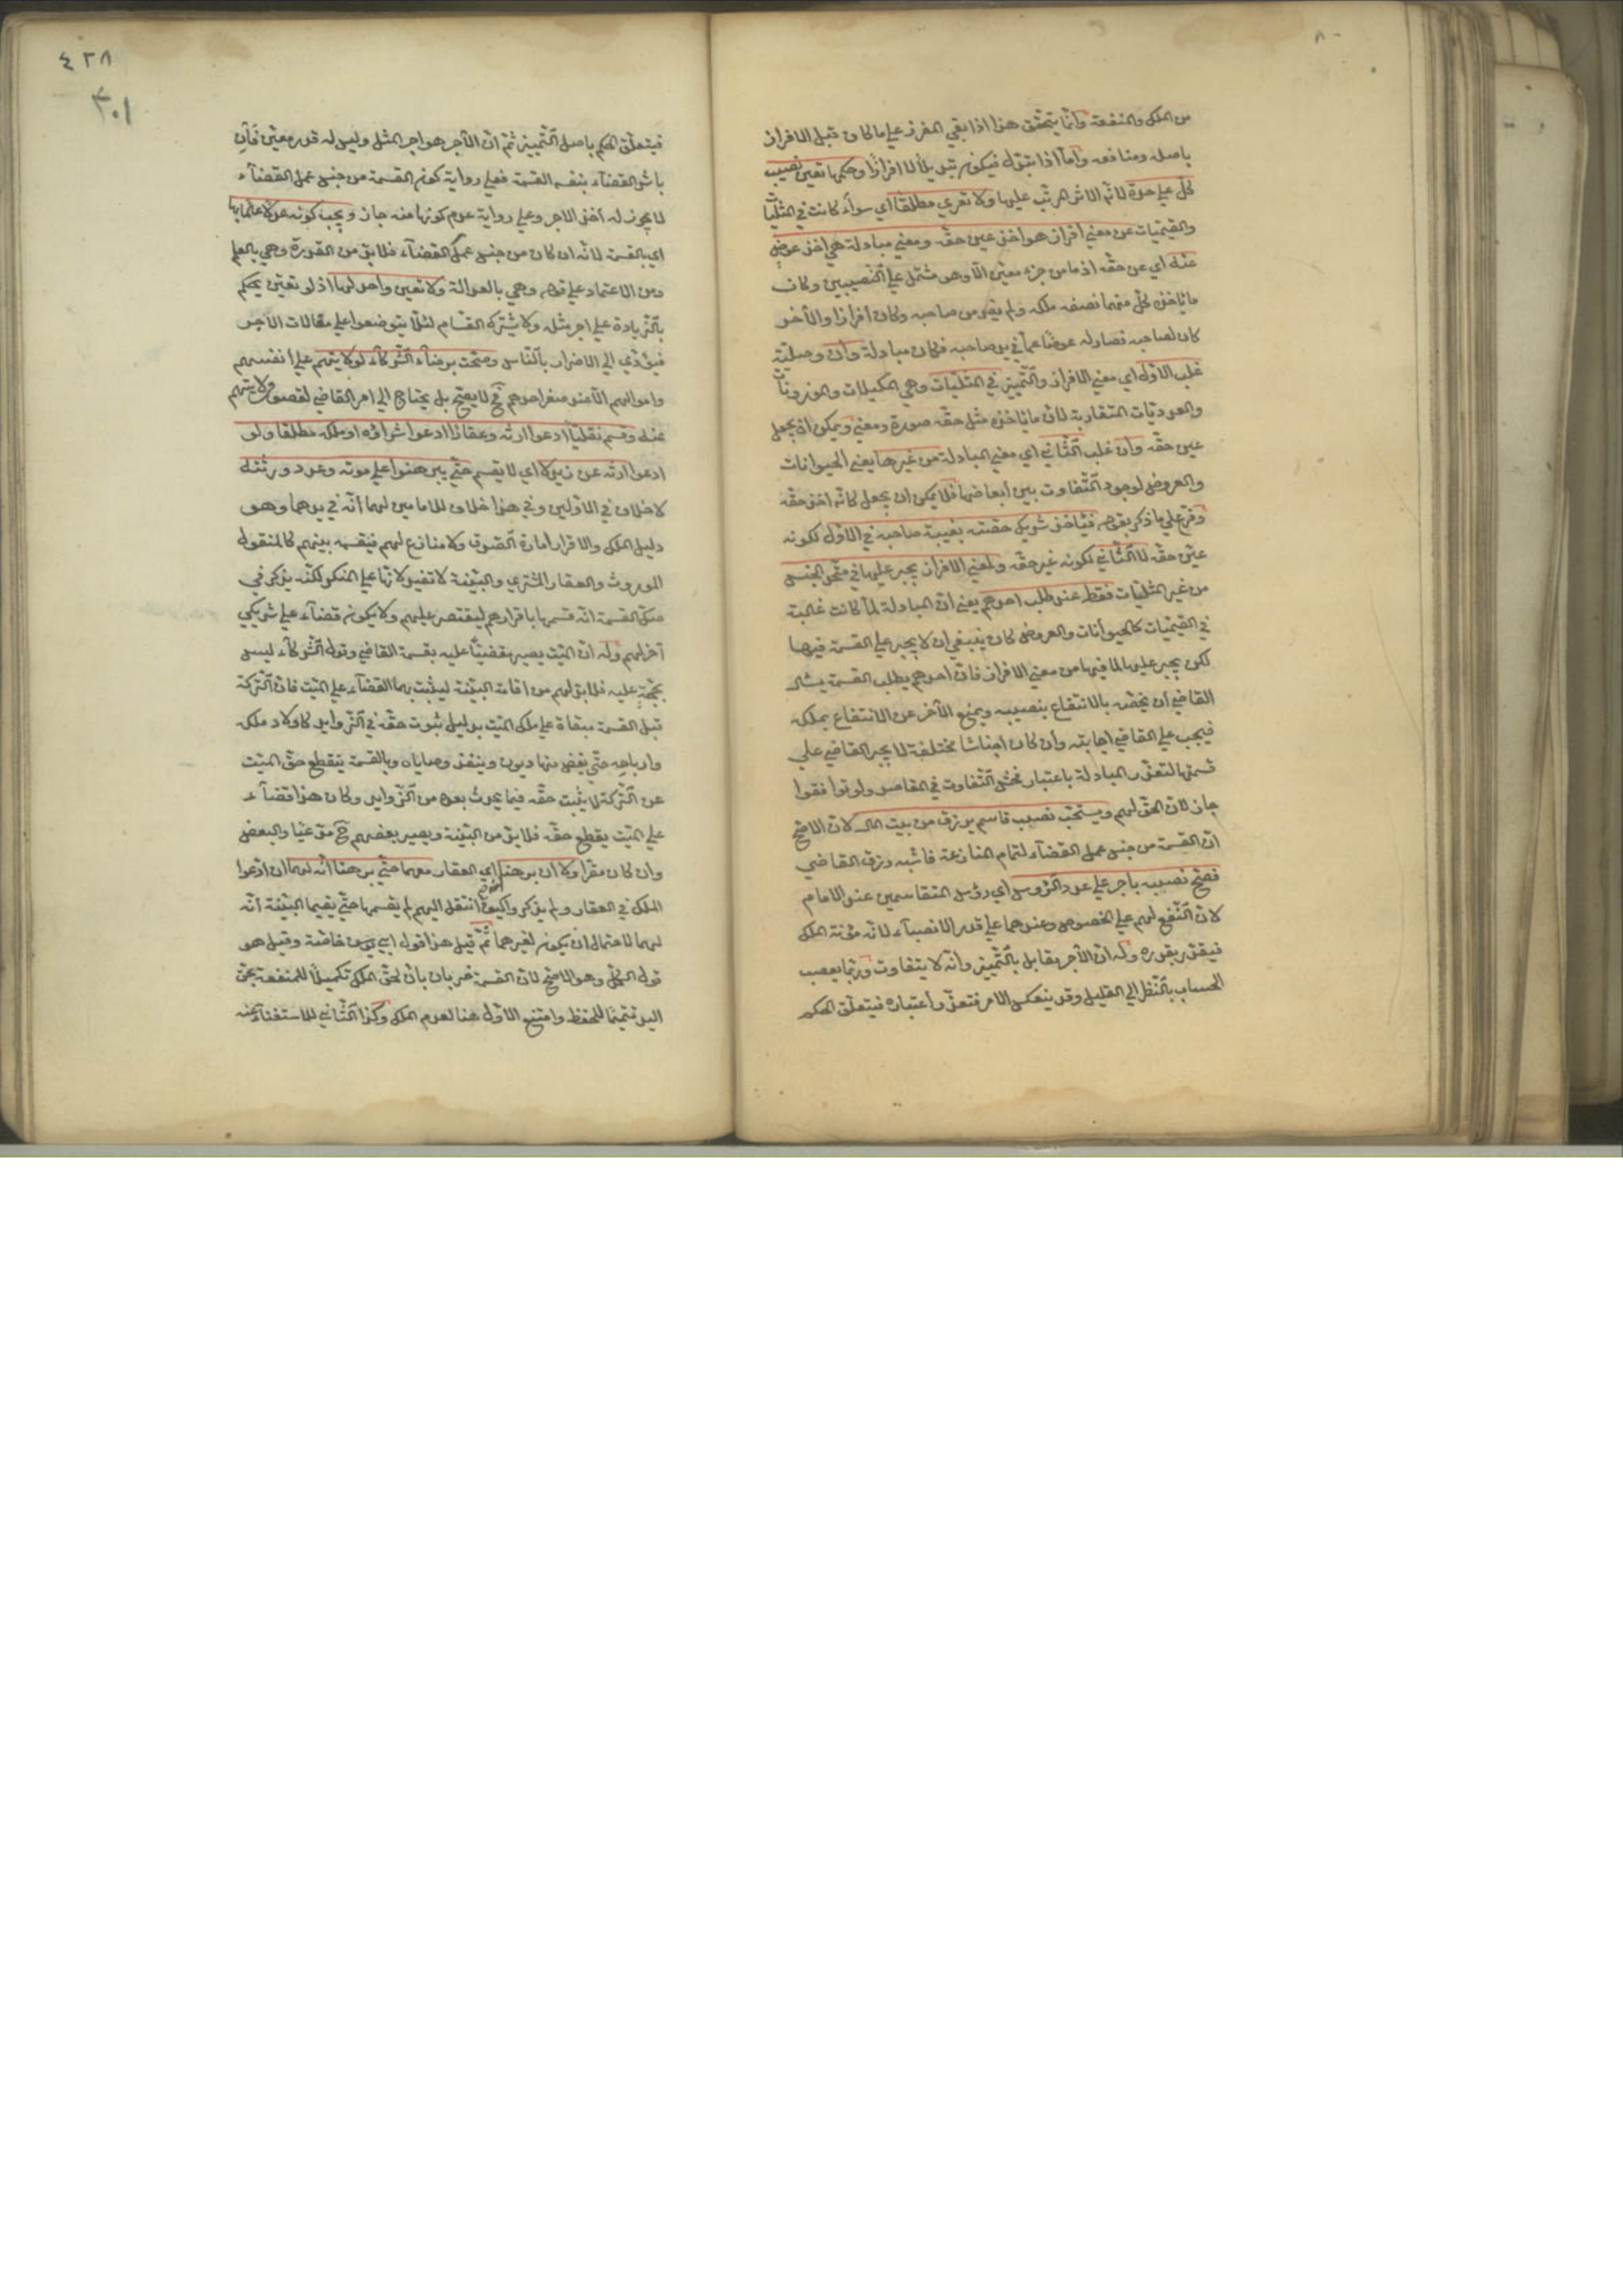 من الملك والمنفعة وانما يتحقق هذا اذا بقي المفرز على ما كان قبل الافراز
باصله ومنافعه وأما اذا تبدل فيكون تبديلا لا افرازا وحكمها تعين نصيب
كل على حدة لانه الاثر المرتب عليها ولا تعري مطلقا اي سواء كانت في المثليات
والقيميات عن معنى افراز هو اخذ عين حقه ومعنى مبادلة هي اخذ عوض
عنه اي عن حقه اذ ما من جزء معين الا وهو مشتمل على النصيبين وكان
ما يأخذه كل منهما نصفه ملكه ولم يستفد من صاحبه وكان افرازا والآخر
كان لصاحبه فصار له عوضا عما في يد صاحبه فكان مبادلة وان وصلية
غلب الاول اي معنى الافراز والتمييز في المثليات وهي المكيلات والموزونات
والعدديات المتقاربة لان ما يأخذه مثل حقه صورة ومعنى ويمكن ان يجعل
عين حقه وان غلب الثاني اي معنى المبادلة من غيرها يعني الحيوانات
والعروض لوجود التفاوت بين أبعاضها فلا يمكن ان يجعل كانه اخذ حقه
وفرع على ما ذكر بقوله فيأخذ شريك حصته بغيبة صاحبه في الاول لكونه
عين حقه لا الثاني لكونه غير حقه ولمعنى الافراز يجبر عليها في متحد الجنس
من غير المثليات فقط عند طلب احدهم يعني ان المبادلة لما كانت غالبة
في القيميات كالحيوانات والعروض كان ينبغي ان لا يجبر على القسمة فيها
لكن يجبر عليها لما فيها من معنى الافراز فان احدهم بطلب القسمة يسأل
القاضي ان يخصه بالانتفاع بنصيبه ويمنع الآخر عن الانتفاع بملكه
فيجب على القاضي اجابته وان كان اجناسا مختلفة لا يجبر القاضي على
قسمتها لتعذر المبادلة باعتبار فحش التفاوت في المقاصد ولو توافقوا
جاز لان الحق لهم ويستحب نصب قاسم يرزق من بيت المال لان الاصح
ان القسمة من جنس عمل القضاء لتمام المنازعة فاشبه رزق القاضي
فصح نصيبه باجر على عدد الرؤوس اي رؤس المتقاسمين عند الامام
لان النفع لهم على الخصوص وعندهما على قدر الانصباء لانه مؤنة الملك
فيتقدر بقدره وله ان الأجر يقابل بالتمييز وانه لا يتفاوت وربما يصعب
الحساب بالنظر الى القليل وقد ينعكس الامر فتعذر اعتباره فيتعلق الحكم
٤٢٨
٣٠١
فيتعلق الحكم باصل التمييز ثم ان الأجر هو اجر المثل وليس له قدر معين فان
باشر القضاء بنفسه القسمة فعلى رواية كون القسمة من جنس عمل القضاء
لا يجوز له اخذ الاجر وعلى رواية عدم كونها منه جاز ويجب كونه عدلا عالما بها
اي بالقسمة لانه ان كان من جنس عمل القضاء فلا بد من القدرة وهي بالعلم
ومن الاعتماد على قوله وهي بالعدالة ولا تعين واحد لها اذ لو تعين يحكم
بالزيادة على اجر مثله ولا يشترك القسام لئلا يتواضعوا على مغالات الأجر
فيؤدي الى الاضرار بالناس وصحت برضاء الشركاء لولايتهم على انفسهم
واموالهم الا عند صغر احدهم فح لا يصح بل يحتاج الى امر القاضي لقصور ولايتهم
عنه وقسم نقليا ادعوا ارثه وعقارا ادعوا شراؤه او ملكه مطلقا ولو
ادعوا ارثه عن زيد لا اي لا يقسم حتى يبرهنوا على موته وعدد ورثته
لا خلاف في الاولين وفي هذا خلاف للامامين لهما انه في يدهما وهو
دليل الملك والاقرار امارة الصدق ولا منازع لهم فيقسمه بينهم كالمنقول
الموروث والعقار المشتري والبينة لا تفيد لانها على المنكر لكنه يذكر في
صك القسمة انه قسمها باقرارهم ليقتصر عليهم ولا يكون قضاء على شريك
آخر لهم وله ان الميت يصير مقضيا عليه بقسمة القاضي وقول الشركاء ليس
بحجة عليه فلا بد لهم من اقامة البينة ليثبت بها القضاء على الميت فان التركة
قبل القسمة مبقاة على ملك الميت بدليل ثبوت حقه في الزوايد كاولاد ملكه
وارباحه حتى يقضى منها ديون وينفذ وصاياه وبالقسمة ينقطع حق الميت
عن التركة لا يثبت حقه فيما يحدث بعده من الزوايد وكان هذا قضاء
على الميت بقطع حقه فلا بد من البينة ويصير بعضهم ح مدعيا والبعض
وان كان مقرا ولا ان برهنا اي العقار معهما حتى برهنا انه لهما ان ادعوا
الملك في العقار ولم يذكروا كيف انتقل اليهم لم يقسمها حتى يقيما البينة انه
لهما لاحتمال ان يكون لغيرهما ثم قيل هذا قول ابي خاصة وقيل هو
قول الكل وهو الاصح لان القسمة ضربان بأن لحق الملك تكميلا للمنفعة بحق
اليد تتميما للحفظ وامتنع الاول هنا لعدم الملك وكذا الثاني للاستغناء عنه